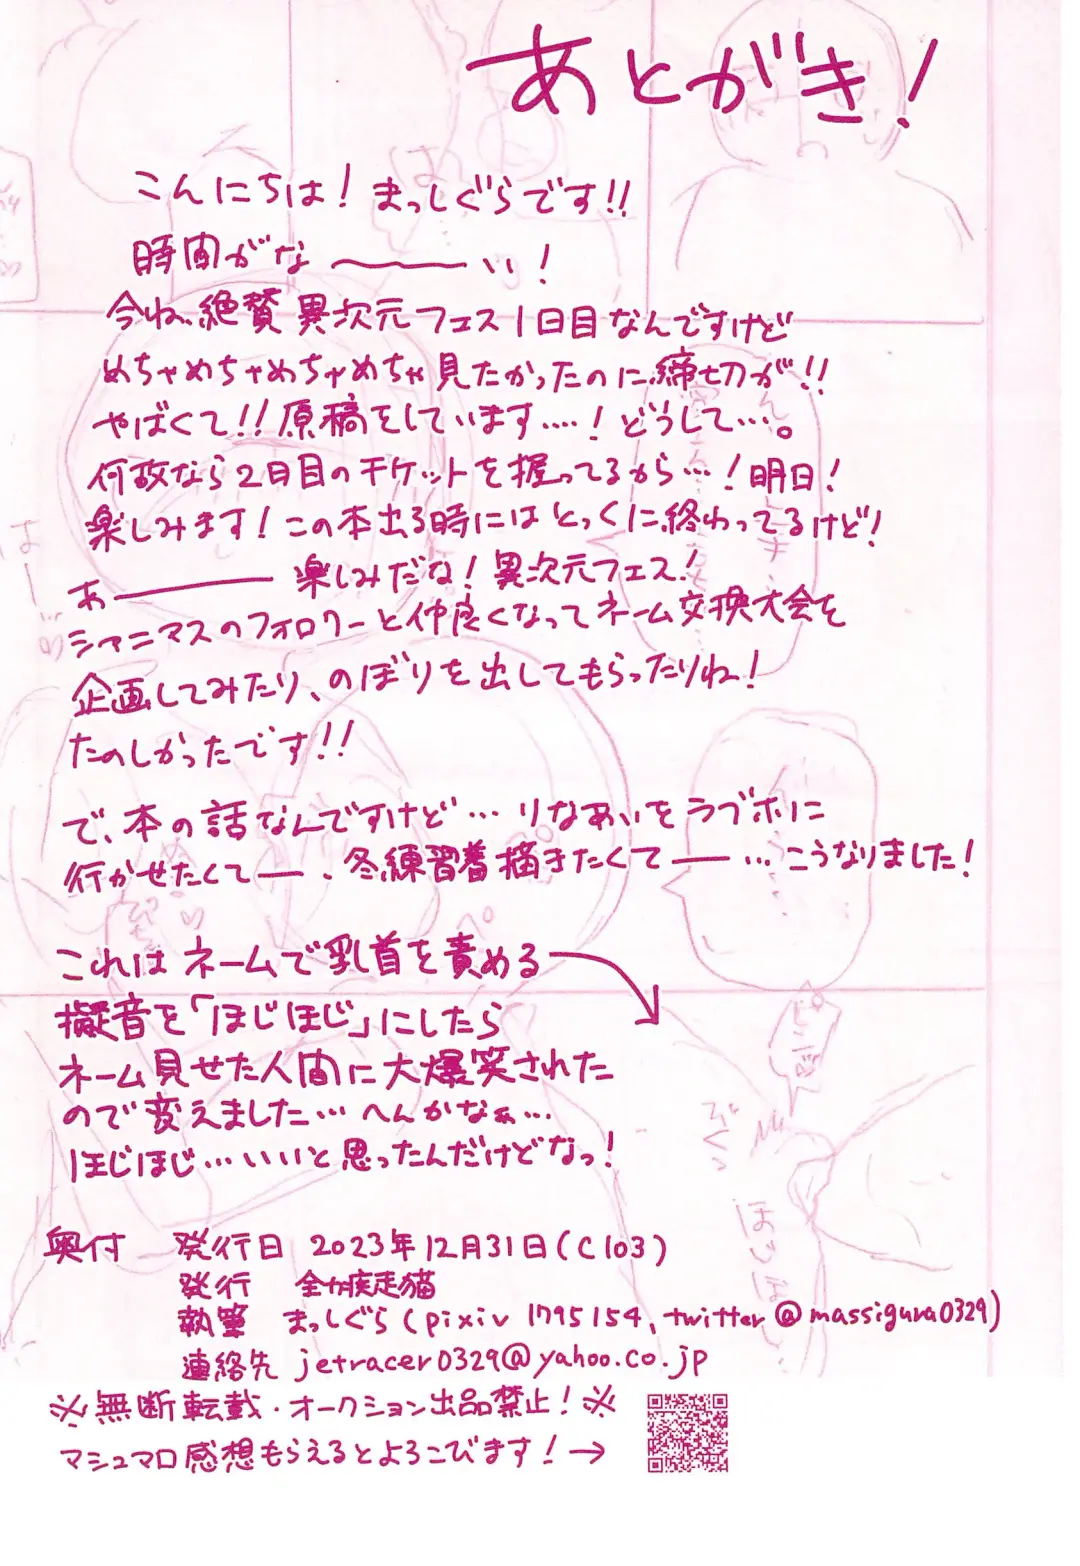 あとがき!
こんにちは! まっしぐらです!!
時間がな〜〜い!
今ね、絶賛異次元フェス1日目なんですけど
めちゃめちゃめちゃめちゃ見たかったのに締切が!!
やばくて!! 原稿をしています....! どうして…。
何故なら2日目のチケットを握ってるから…! 明日!
楽しみます! この本出る時にはとっくに終わってるけど!
あ―――― 楽しみだな! 異次元フェス!
シャニマスのフォロワーと仲良くなってネーム交換大会を
企画してみたり、のぼりを出してもらったりね!
たのしかったです!!
で、本の話なんですけど… りなあいをラブホに
行かせたくてー、冬練習着描きたくてー…こうなりました!
これはネームで乳首を責める
擬音を「ほじほじ」にしたら
ネーム見せた人間に大爆笑された
ので変えました… へんかなぁ…
ほじほじ…いいと思ったんだけどなっ!
びくっ
ほじほ
奥付 発行日 2023年12月31日(C103)
発行 全力疾走猫
執筆 まっしぐら(pixiv 1795154、twitter @massigura0329)
連絡先 jetracer0329@yahoo.co.jp
※無断転載・オークション出品禁止!※
マシュマロ感想もらえるとよろこびます! →